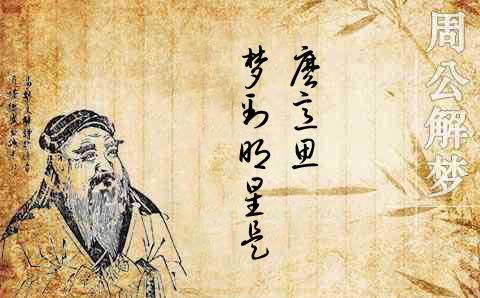 周公解梦
梦到明星是
麼意思